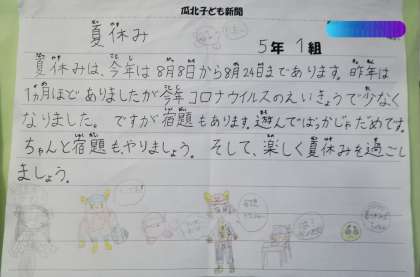 瓜北子ども新聞
夏休み
5年 1組
夏休みは、今年は8月8日から8月24日まであります。昨年は
1ヵ月ほどありましたが今年コロナウイルスのえいきょうで少なく
なりました。ですが宿題もあります。遊んでばっかじゃだめです。
ちゃんと宿題も、やりましょう。そして、楽しく夏休みを過ごし
ましょう。